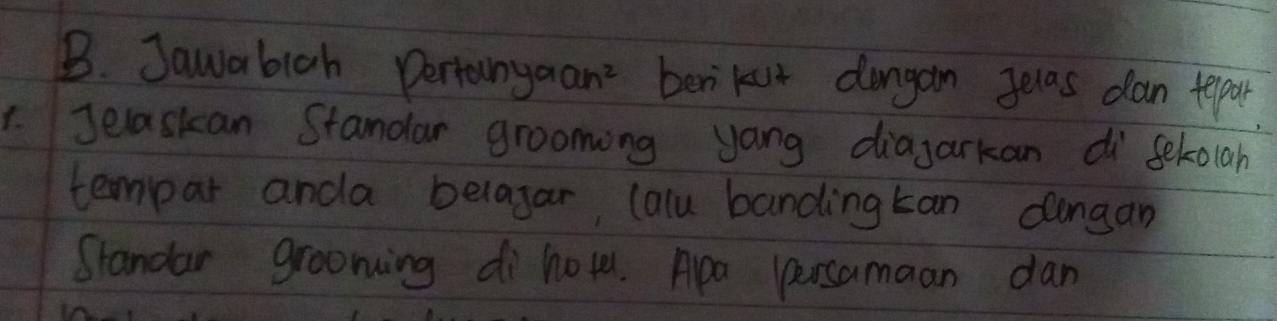 B. Jawablah pertanyaan² berikut dengan jelas dan tepat.
1. Jelaskan Standar grooming yang diajarkan di sekolah
tempat anda belajar, lalu bandingkan dengan
Standar grooming di hotel. Apa persamaan dan